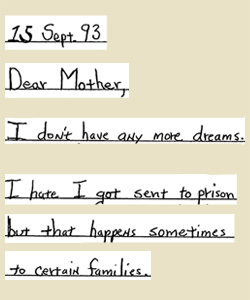 15 Sept. 93
Dear Mother,
I don't have any more dreams.
I hate I got sent to prison
but that happens sometimes
to certain families.